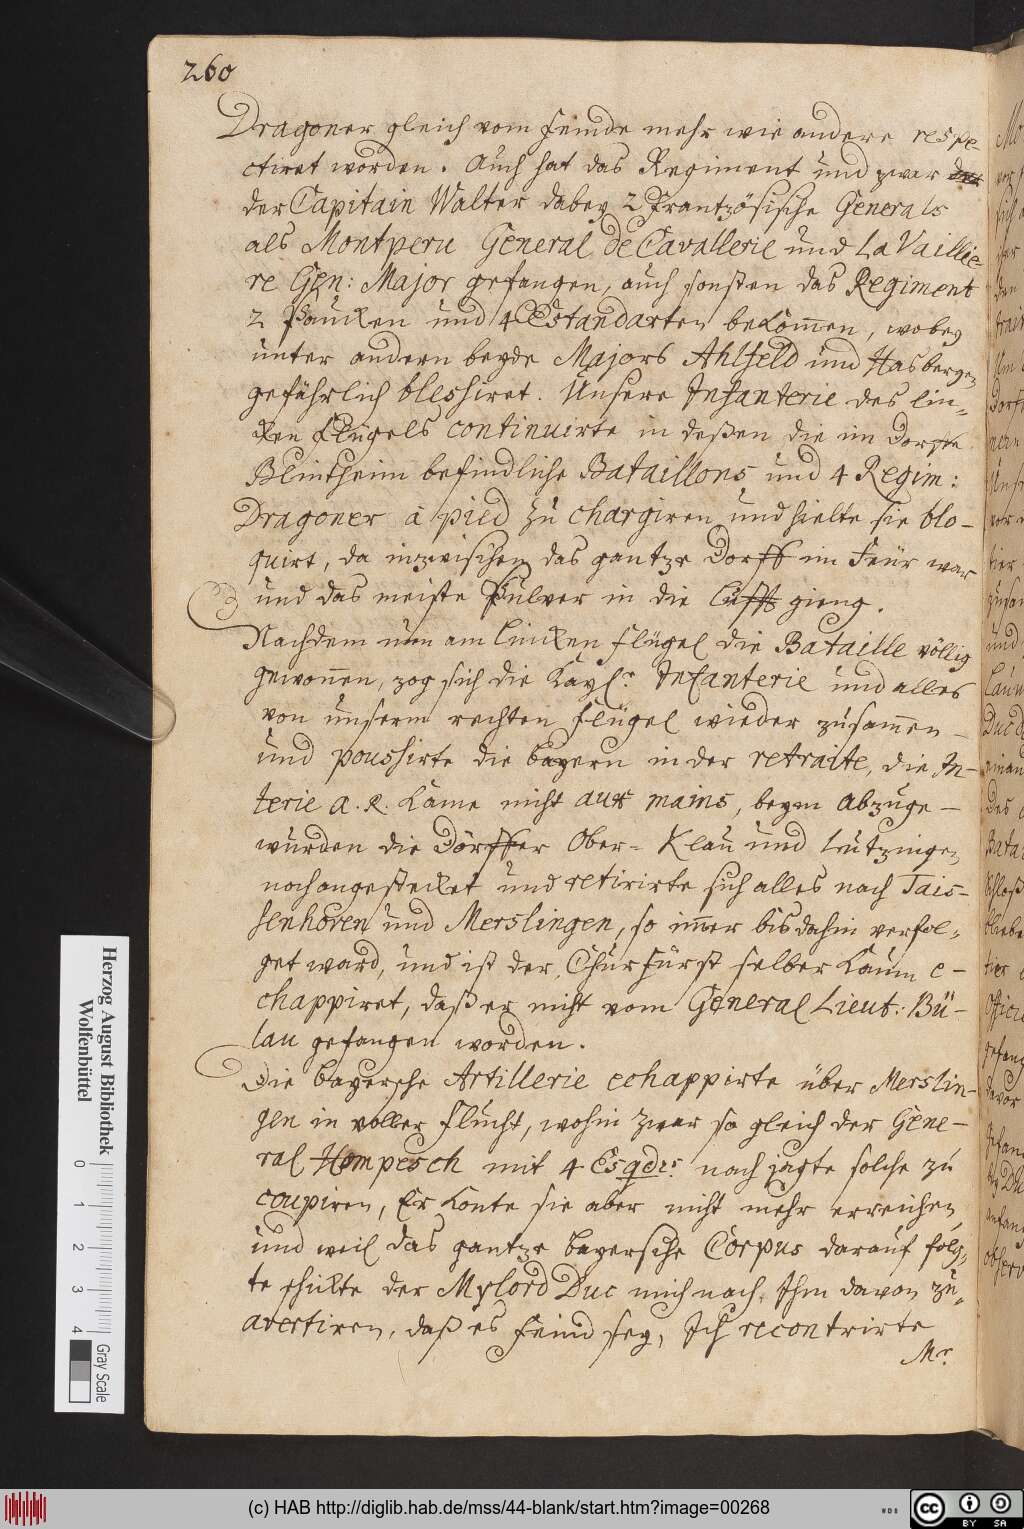 260
Dragoner gleich vom Feinde mehr wie andere respe-
ctiret worden. Auch hat das Regiment und zwar
der Capitain Walter dabey 2 Frantzösische Generals
als Montperu General de Cavallerie und La Vaillie-
re Gen: Major gefangen, auch sonsten das Regiment
2 Paucken und 4 Estandarten bekom̅en, wobey
unter andern beyde Majors Ahlfeld und Hasbergen
gefährlich blessiret. Unsere Infanterie des lin-
ken Flügels continuirte in deßen die im Dorffe
Blintheim befindliche Bataillons und 4 Regim:
Dragoner à pied zu chargiren und hielte sie blo-
quirt, da inzwischen das gantze Dorff im Feür war
und das meiste Pulver in die Lufft gieng.
Nachdem nun am lincken Flügel die Bataille völlig
gewon̅en, zog sich die Kayl. Infanterie und alles
von unserm rechten Flügel wieder zusam̅en
und poussirte die bayern in der retraite, die In-
terie a. R. kame nicht aux mains, beym Abzuge
wurden die Dörffer Ober-Klau und Lutzingen
noch angestecket und retirirte sich alles nach Tais-
senhoven und Merslingen, so im̅er bis dahin verfol-
get ward, und ist der Churfürst selber kaum e-
chappiret, daß er nicht vom General Lieut: Bü-
lau gefangen worden.
Die bayersche Artillerie echappirte über Merslin-
gen in voller Flucht, wohin zwar so gleich der Gene-
ral Hompesch mit 4 Esqdrs. nach jagte solche zu
coupiren, Er konte sie aber nicht mehr erreichen
und weil das gantze bayersche Corpus darauf folg-
te shickte der Mylord Duc mich nach, Ihm davon zu
avertiren, daß es Feind sey, Ich recontrirte
Mr.
Herzog August Bibliothek
Wolfenbüttel
0 1 2 3 4
Gray Scale
(c) HAB http://diglib.hab.de/mss/44-blank/start.htm?image=00268
WDB
cc BY SA